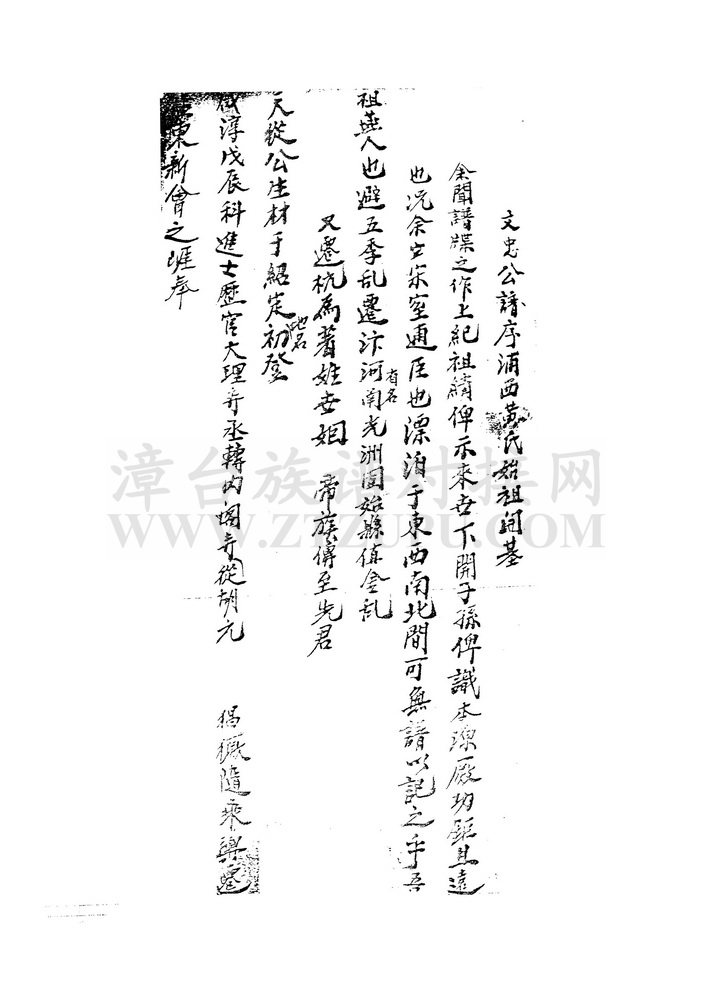 文忠公譜序浦西黄氏始祖開基
余聞譜牒之作上紀祖績俾示來世下開子孫俾識本源厥功鉅且遠
也况余宋室逋臣也漂泊于東西南北間可無譜以記之乎吾
祖人也避五季乱遷汴河南光洲固始縣值金乱
有名
又遷杭為著姓世姻 帝族傳至先君
地名
天從公生材于紹定初登
咸淳戊辰科進士歷官大理寺丞轉内閣寺從胡元 猖獗隨乘輿遷
東新會之崖奉
漳台族谱对接网
WWW.ZTZUPU.COM